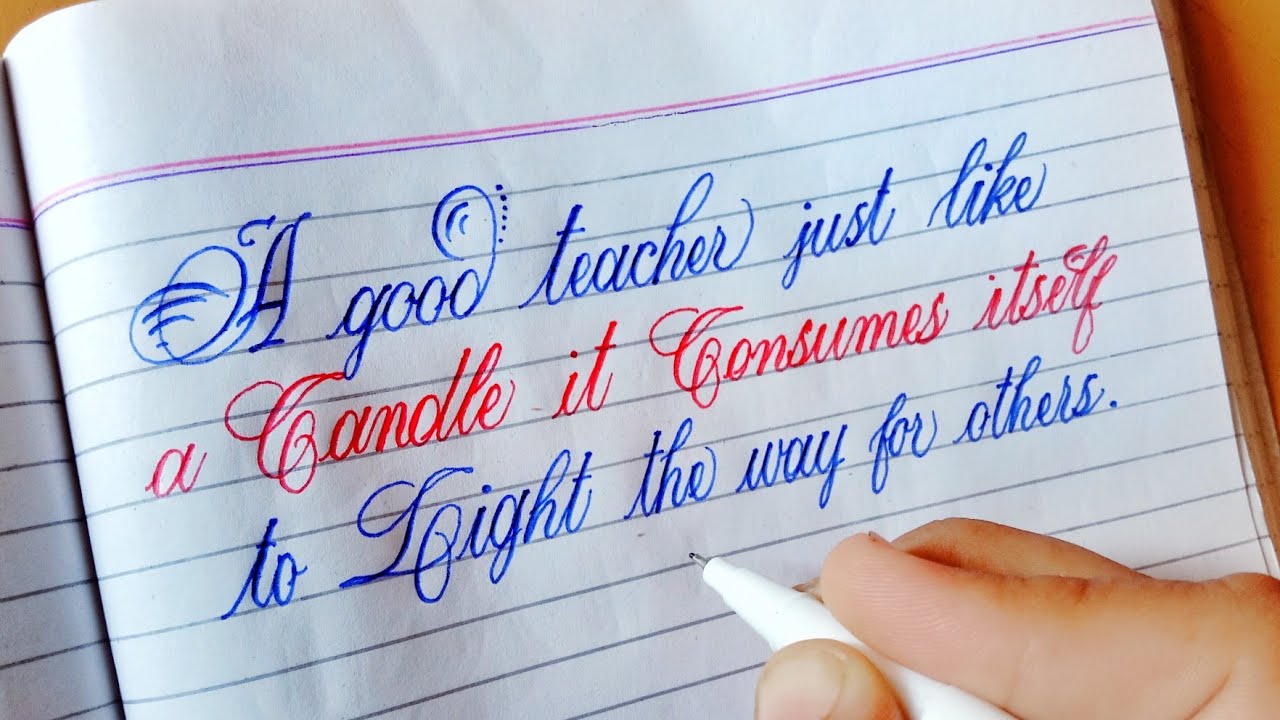 A good teacher just like
a Candle it Consumes itself
to Light the way for others.